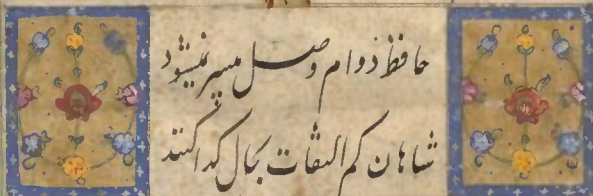 حافظ دوام وصل میسر نمیشود
شاهان کم التفات بحال گدا کنند